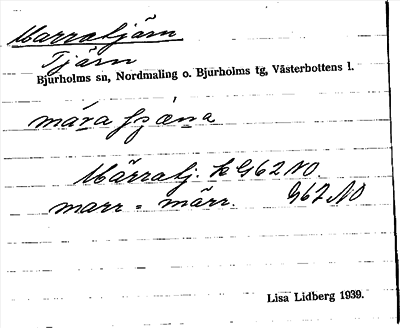 Marratjärn
Tjärn
Bjurholms sn, Nordmaling o. Bjurholms tg, Västerbottens l.
Märratj. k G62 NO
marr = märr. G62 NO
Lisa Lidberg 1939.